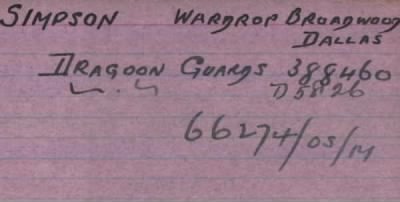 SIMPSON WARDROP BROADWOOD
DALLAS
DRAGOON GUARDS 388460
D5826
66274/05/M